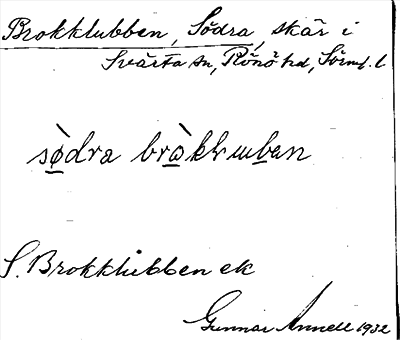 Brokklubben, Södra, skär i
Svärta sn, Rönö hd, Sörml. l.
sø̀dra bràkkɯbən
S. Brokklubben ek
Gunnar Annell 1932